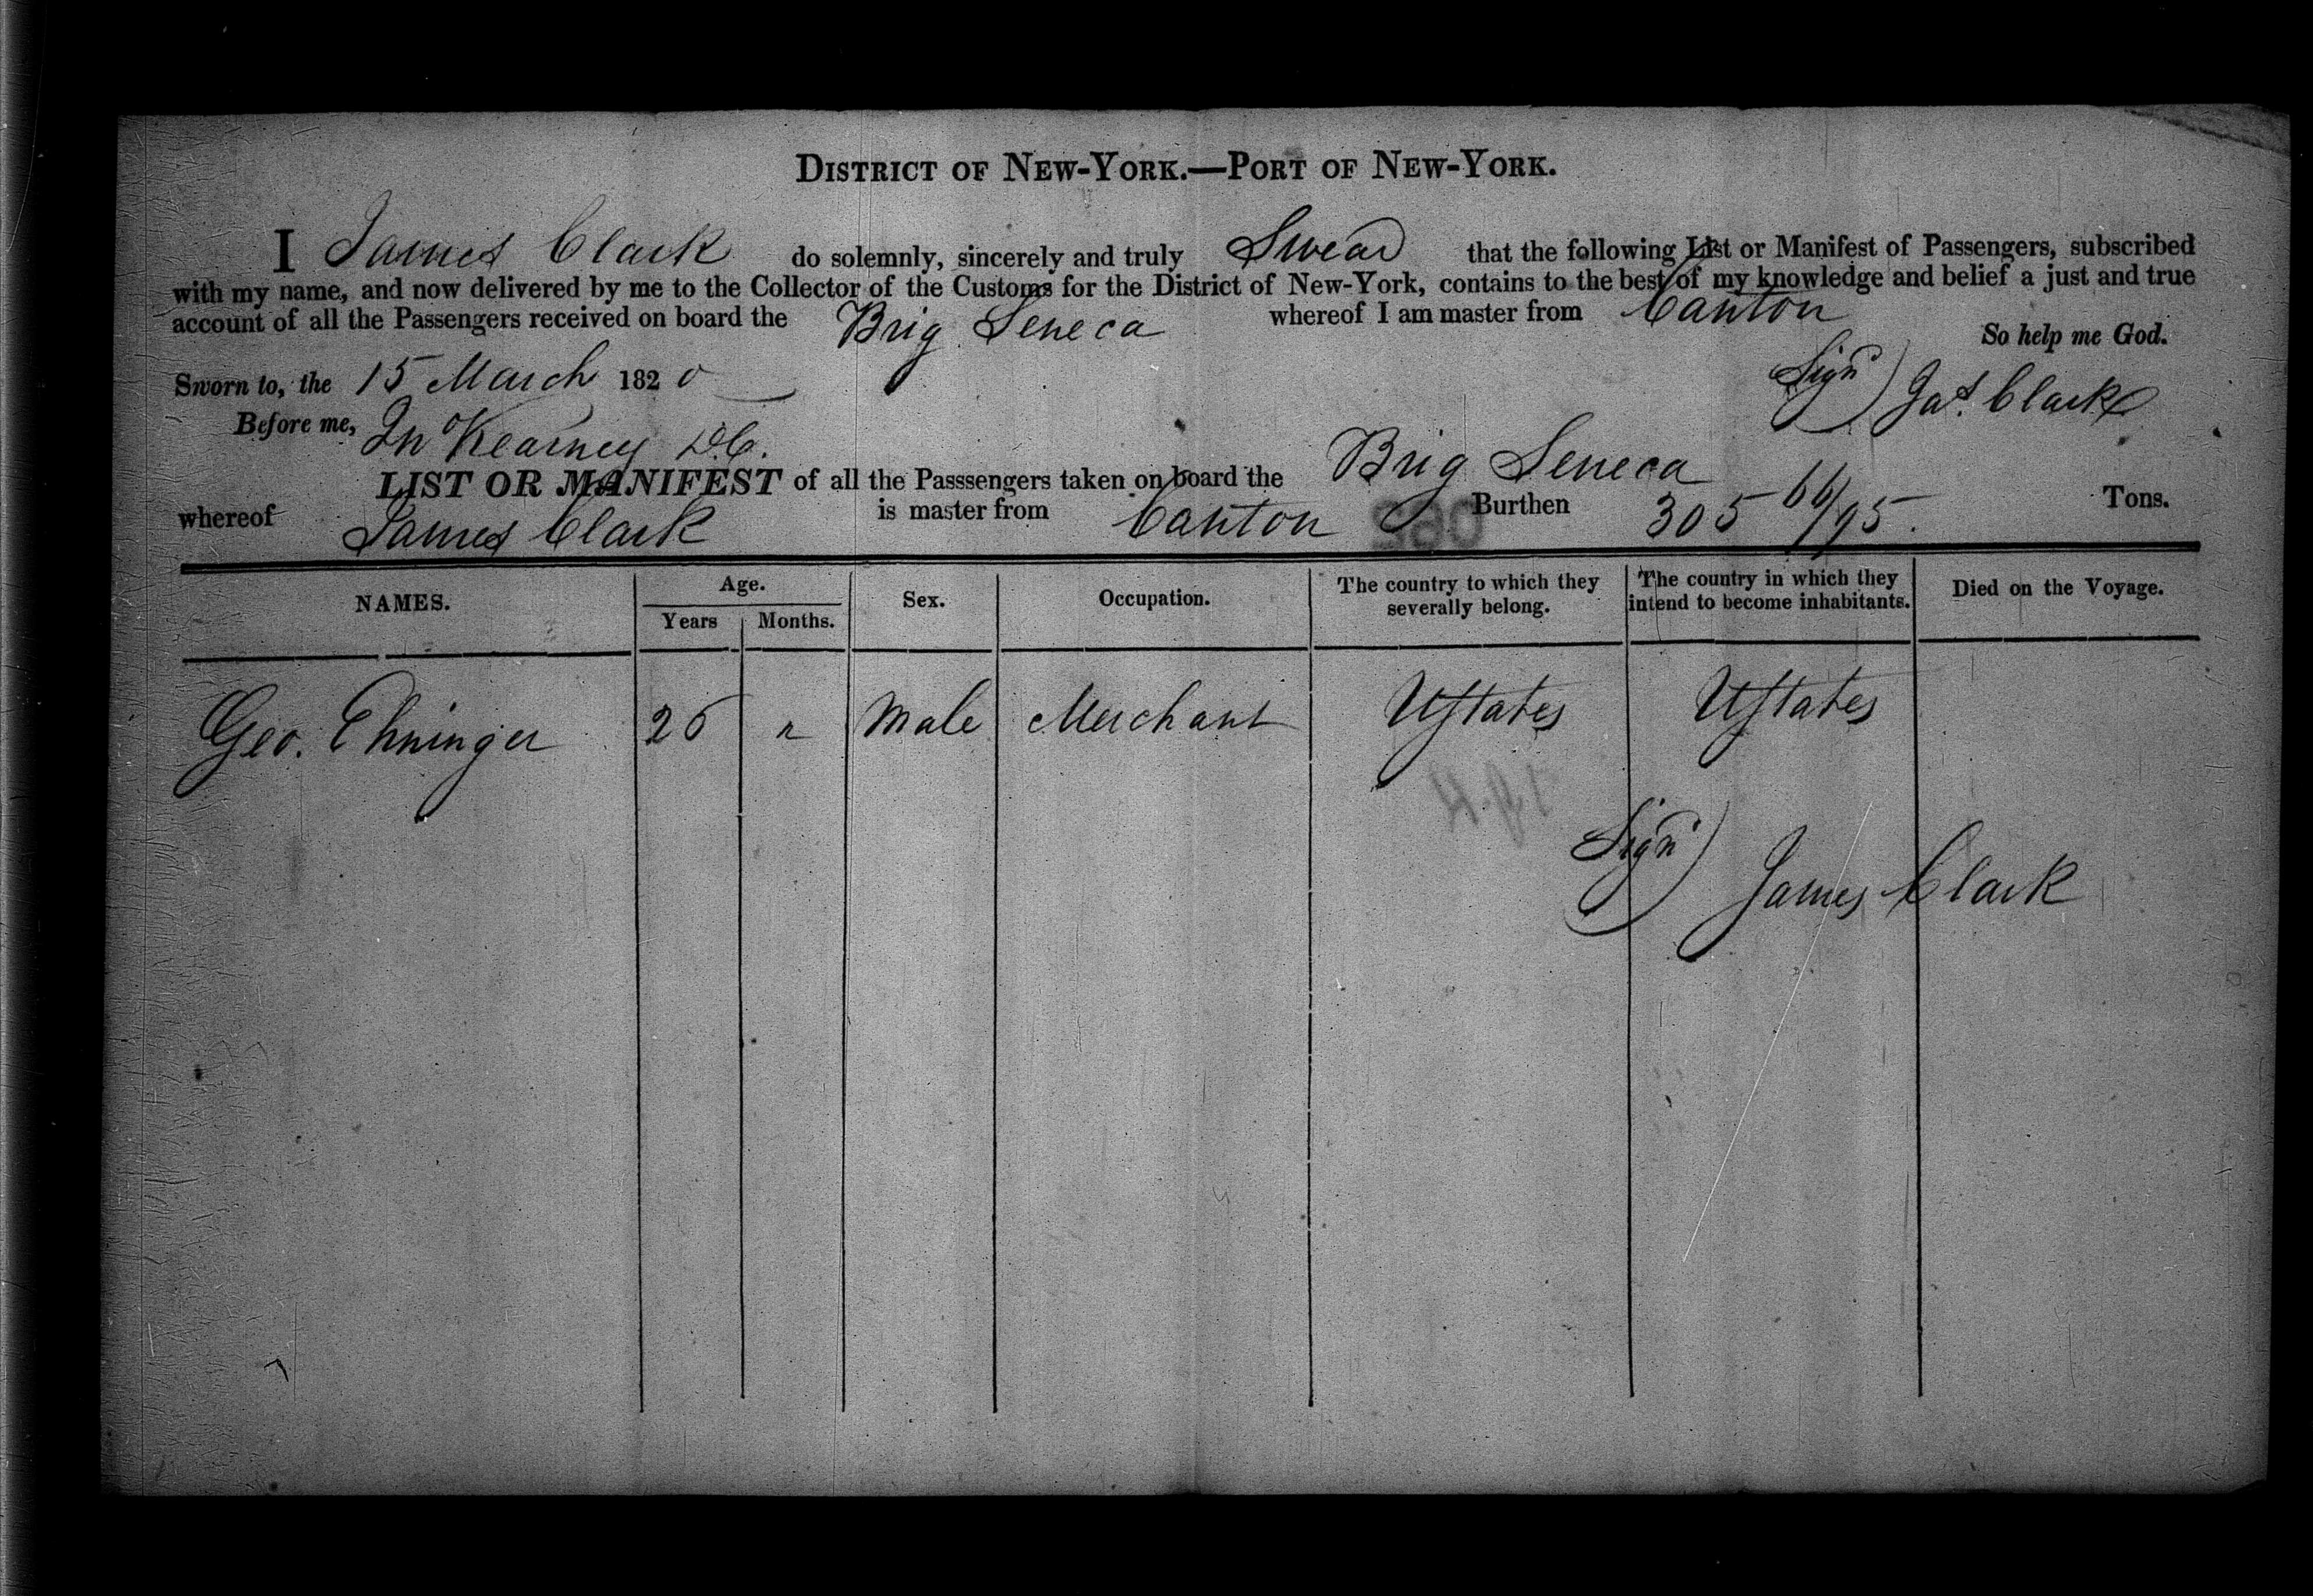 DISTRICT OF NEW-YORK.—PORT OF NEW-YORK.
I James Clark do solemnly, sincerely and truly Swear that the following List or Manifest of Passengers, subscribed
with my name, and now delivered by me to the Collector of the Customs for the District of New-York, contains to the best of my knowledge and belief a just and true
account of all the Passengers received on board the Brig Seneca whereof I am master from Canton
So help me God.
Sworn to, the 15 March 1820
Sign'd) Jas. Clark
Before me, Jn Kearney D.C.
LIST OR MANIFEST of all the Passsengers taken on board the Brig Seneca
whereof James Clark is master from Canton Burthen 305 66/95. Tons.
NAMES. Age. Years Months. Sex. Occupation. The country to which they severally belong. The country in which they intend to become inhabitants. Died on the Voyage.
Geo. Ehninger 26 " Male Merchant UStates UStates
Sign'd) James Clark